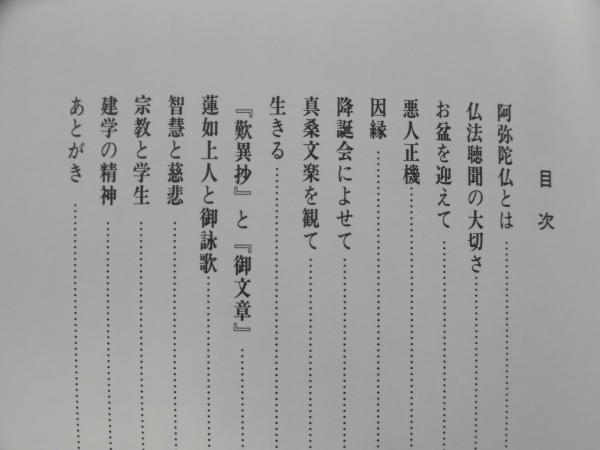 目次
阿弥陀仏とは
仏法聴聞の大切さ
お盆を迎えて
悪人正機
因縁
降誕会によせて
真桑文楽を観て
生きる
『歎異抄』と『御文章』
蓮如上人と御詠歌
智慧と慈悲
宗教と学生
建学の精神
あとがき